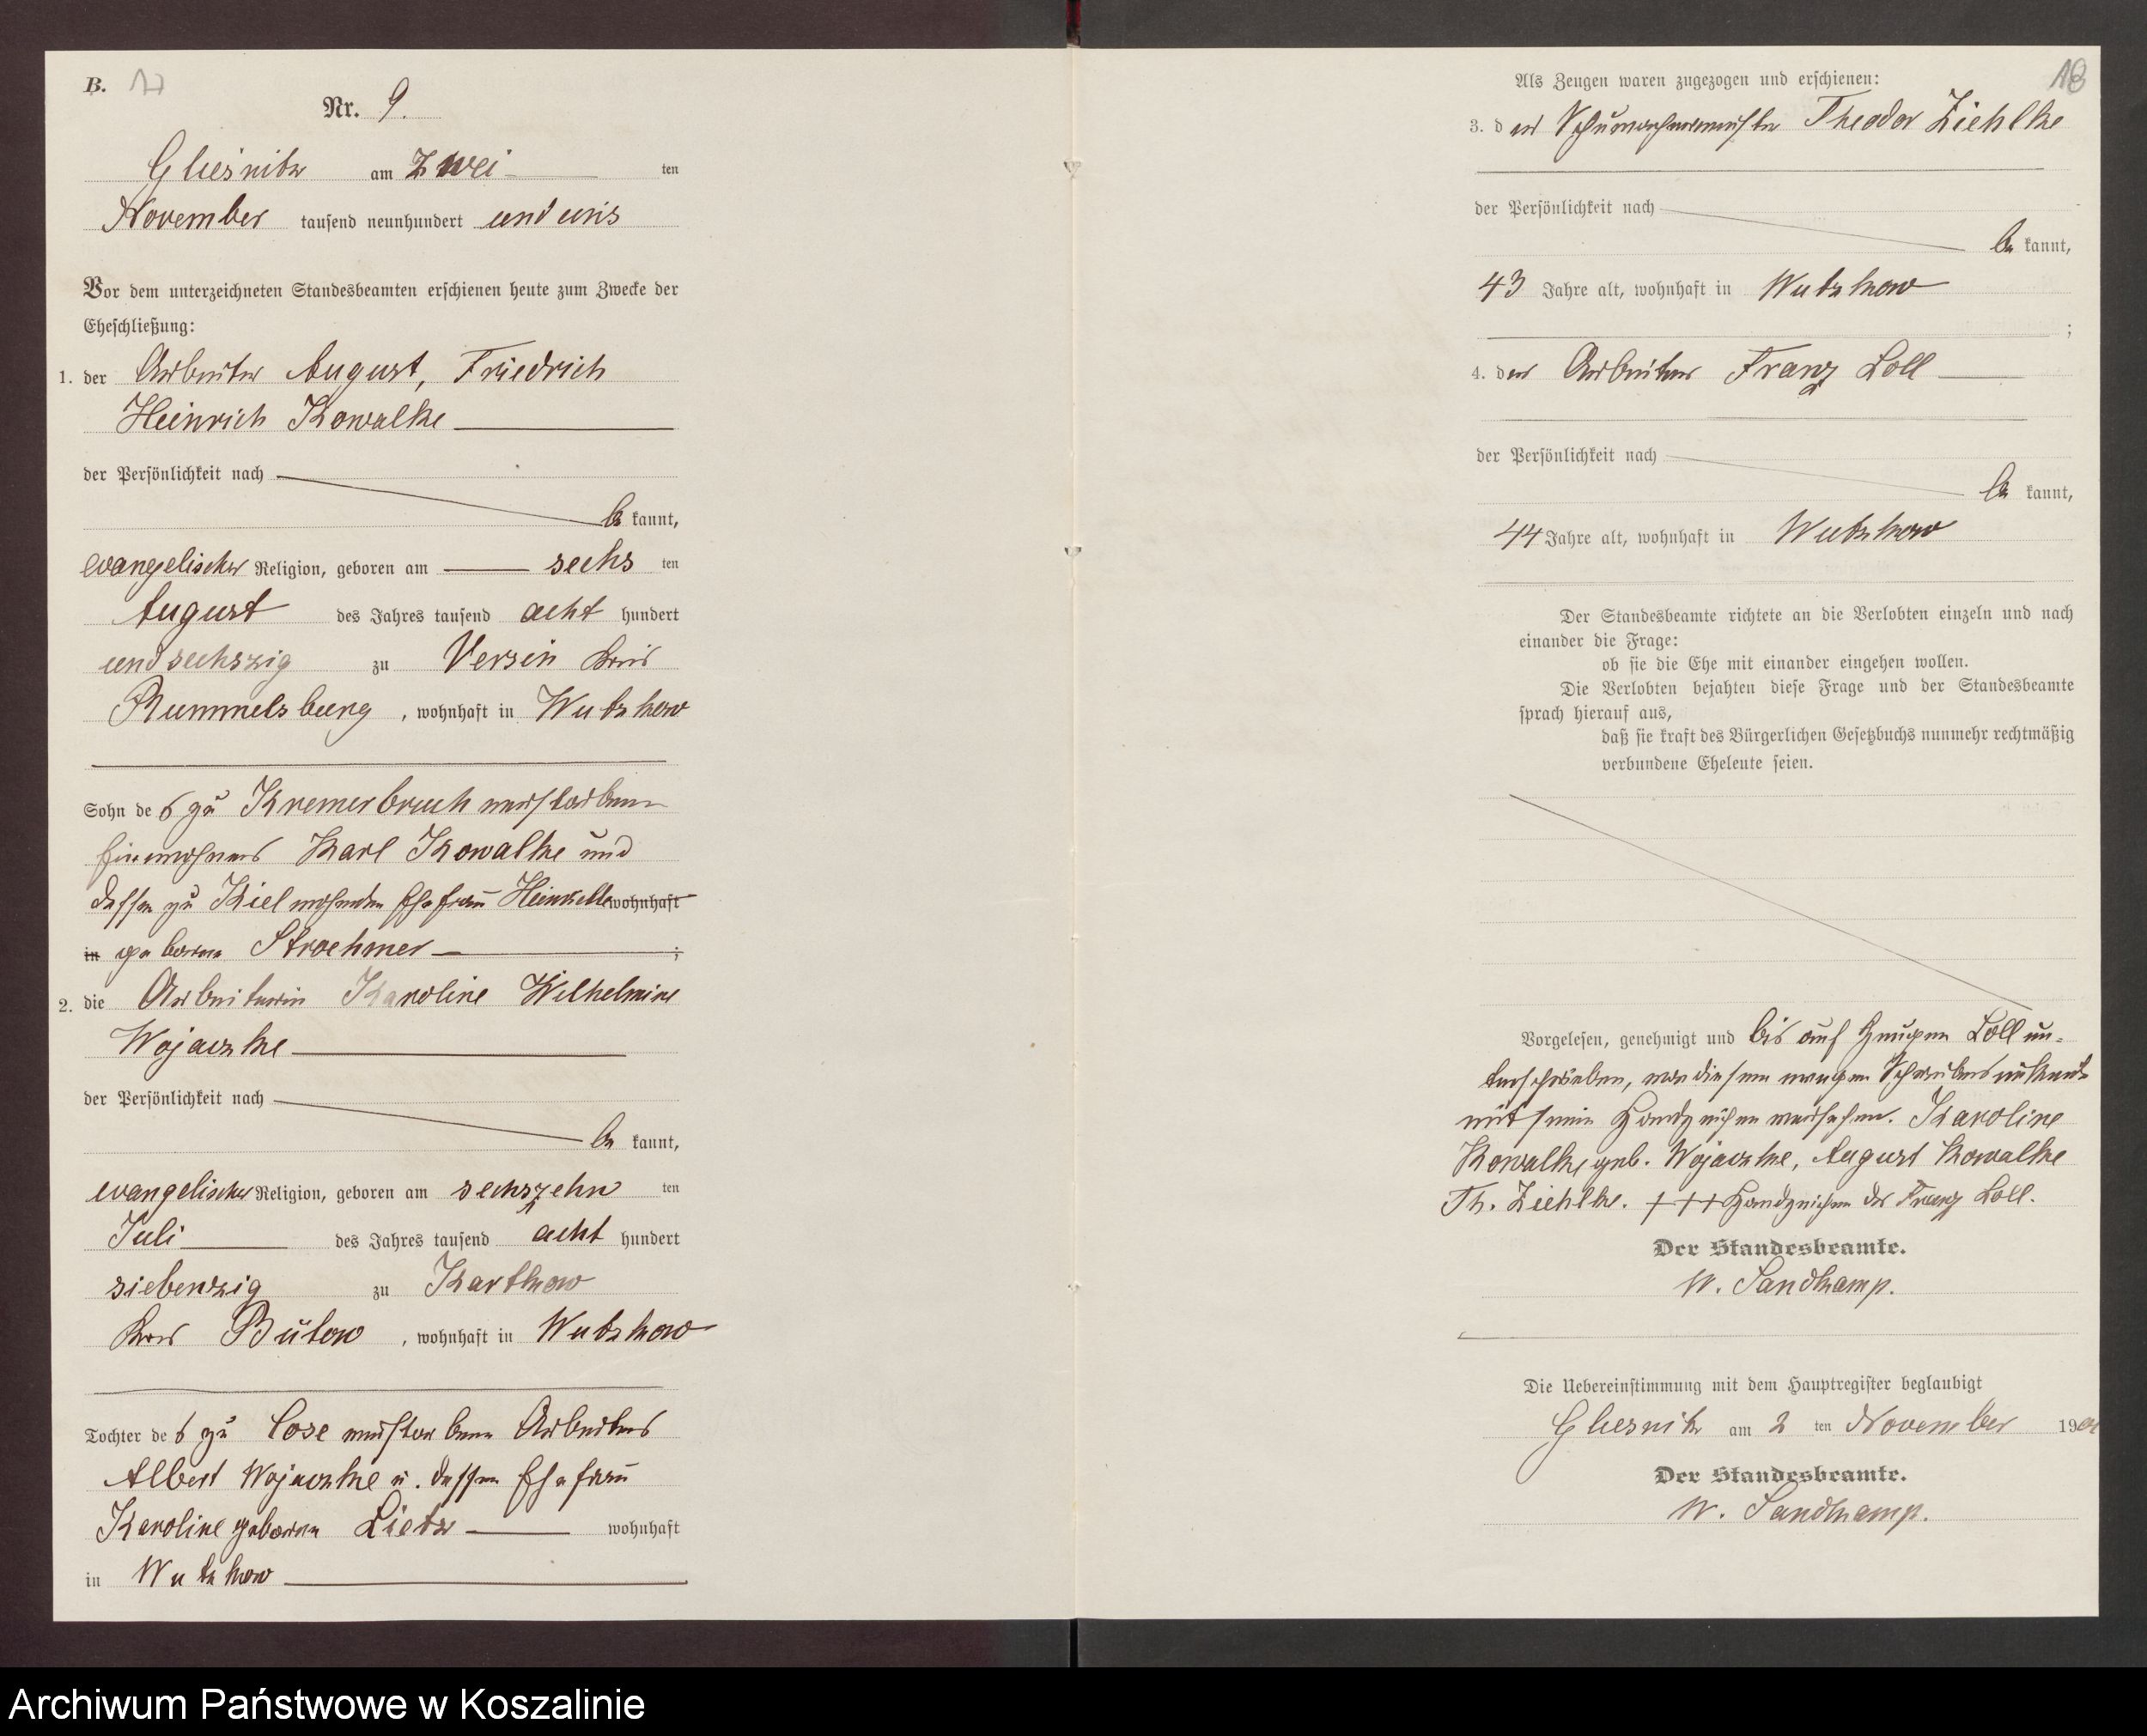 B. 17
Nr. 9.
Gliesnitz am zwei ten
November tausend neunhundert und eins
Vor dem unterzeichneten Standesbeamten erschienen heute zum Zwecke der
Eheschließung:
1. der Arbeiter August, Friedrich
Heinrich Kowalke
der Persönlichkeit nach
be kannt,
evangelischer Religion, geboren am sechs ten
August des Jahres tausend acht hundert
und sechszig zu Versin Kreis
Rummelsburg, wohnhaft in Wutzkow
Sohn des zu Kremerbruch verstorbenen
Einwohners Karl Kowalke und
dessen zu Kiel wohnenden Ehefrau wohnhaft
in geborene Stroehmer ;
2. die Arbeiterin Karoline Wilhelmine
Wojaczke
der Persönlichkeit nach
be kannt,
evangelischer Religion, geboren am sechszehn ten
Juli des Jahres tausend acht hundert
siebenzig zu Karthkow
Kreis Bütow, wohnhaft in Wutzkow
Tochter des zu Lose verstorbenen Arbeiters
Albert Wojaczke u. dessen Ehefrau
Karoline geborene Lietz wohnhaft
in Wutzkow
18
Als Zeugen waren zugezogen und erschienen:
3. der Schumachermeister Theodor Ziehlke
der Persönlichkeit nach
be kannt,
43 Jahre alt, wohnhaft in Wutzkow
;
4. der Arbeiter Franz Loll
der Persönlichkeit nach
be kannt,
44 Jahre alt, wohnhaft in Wutzkow
Der Standesbeamte richtete an die Verlobten einzeln und nach
einander die Frage:
ob sie die Ehe mit einander eingehen wollen.
Die Verlobten bejahten diese Frage und der Standesbeamte
sprach hierauf aus,
daß sie kraft des Bürgerlichen Gesetzbuchs nunmehr rechtmäßig
verbundene Eheleute seien.
Vorgelesen, genehmigt und bis auf Zeugen Loll un-
terschrieben, von diesem wegen Schreibensunkunde
mit seinem Handzeichen versehen. Karoline
Kowalke geb. Wojaczke, August Kowalke
Th. Ziehlke. +++ Handzeichen des Franz Loll.
Der Standesbeamte.
W. Sandkamp.
Die Uebereinstimmung mit dem Hauptregister beglaubigt
Gliesnitz am 2 ten November 1901
Der Standesbeamte.
W. Sandkamp.
Archiwum Państwowe w Koszalinie